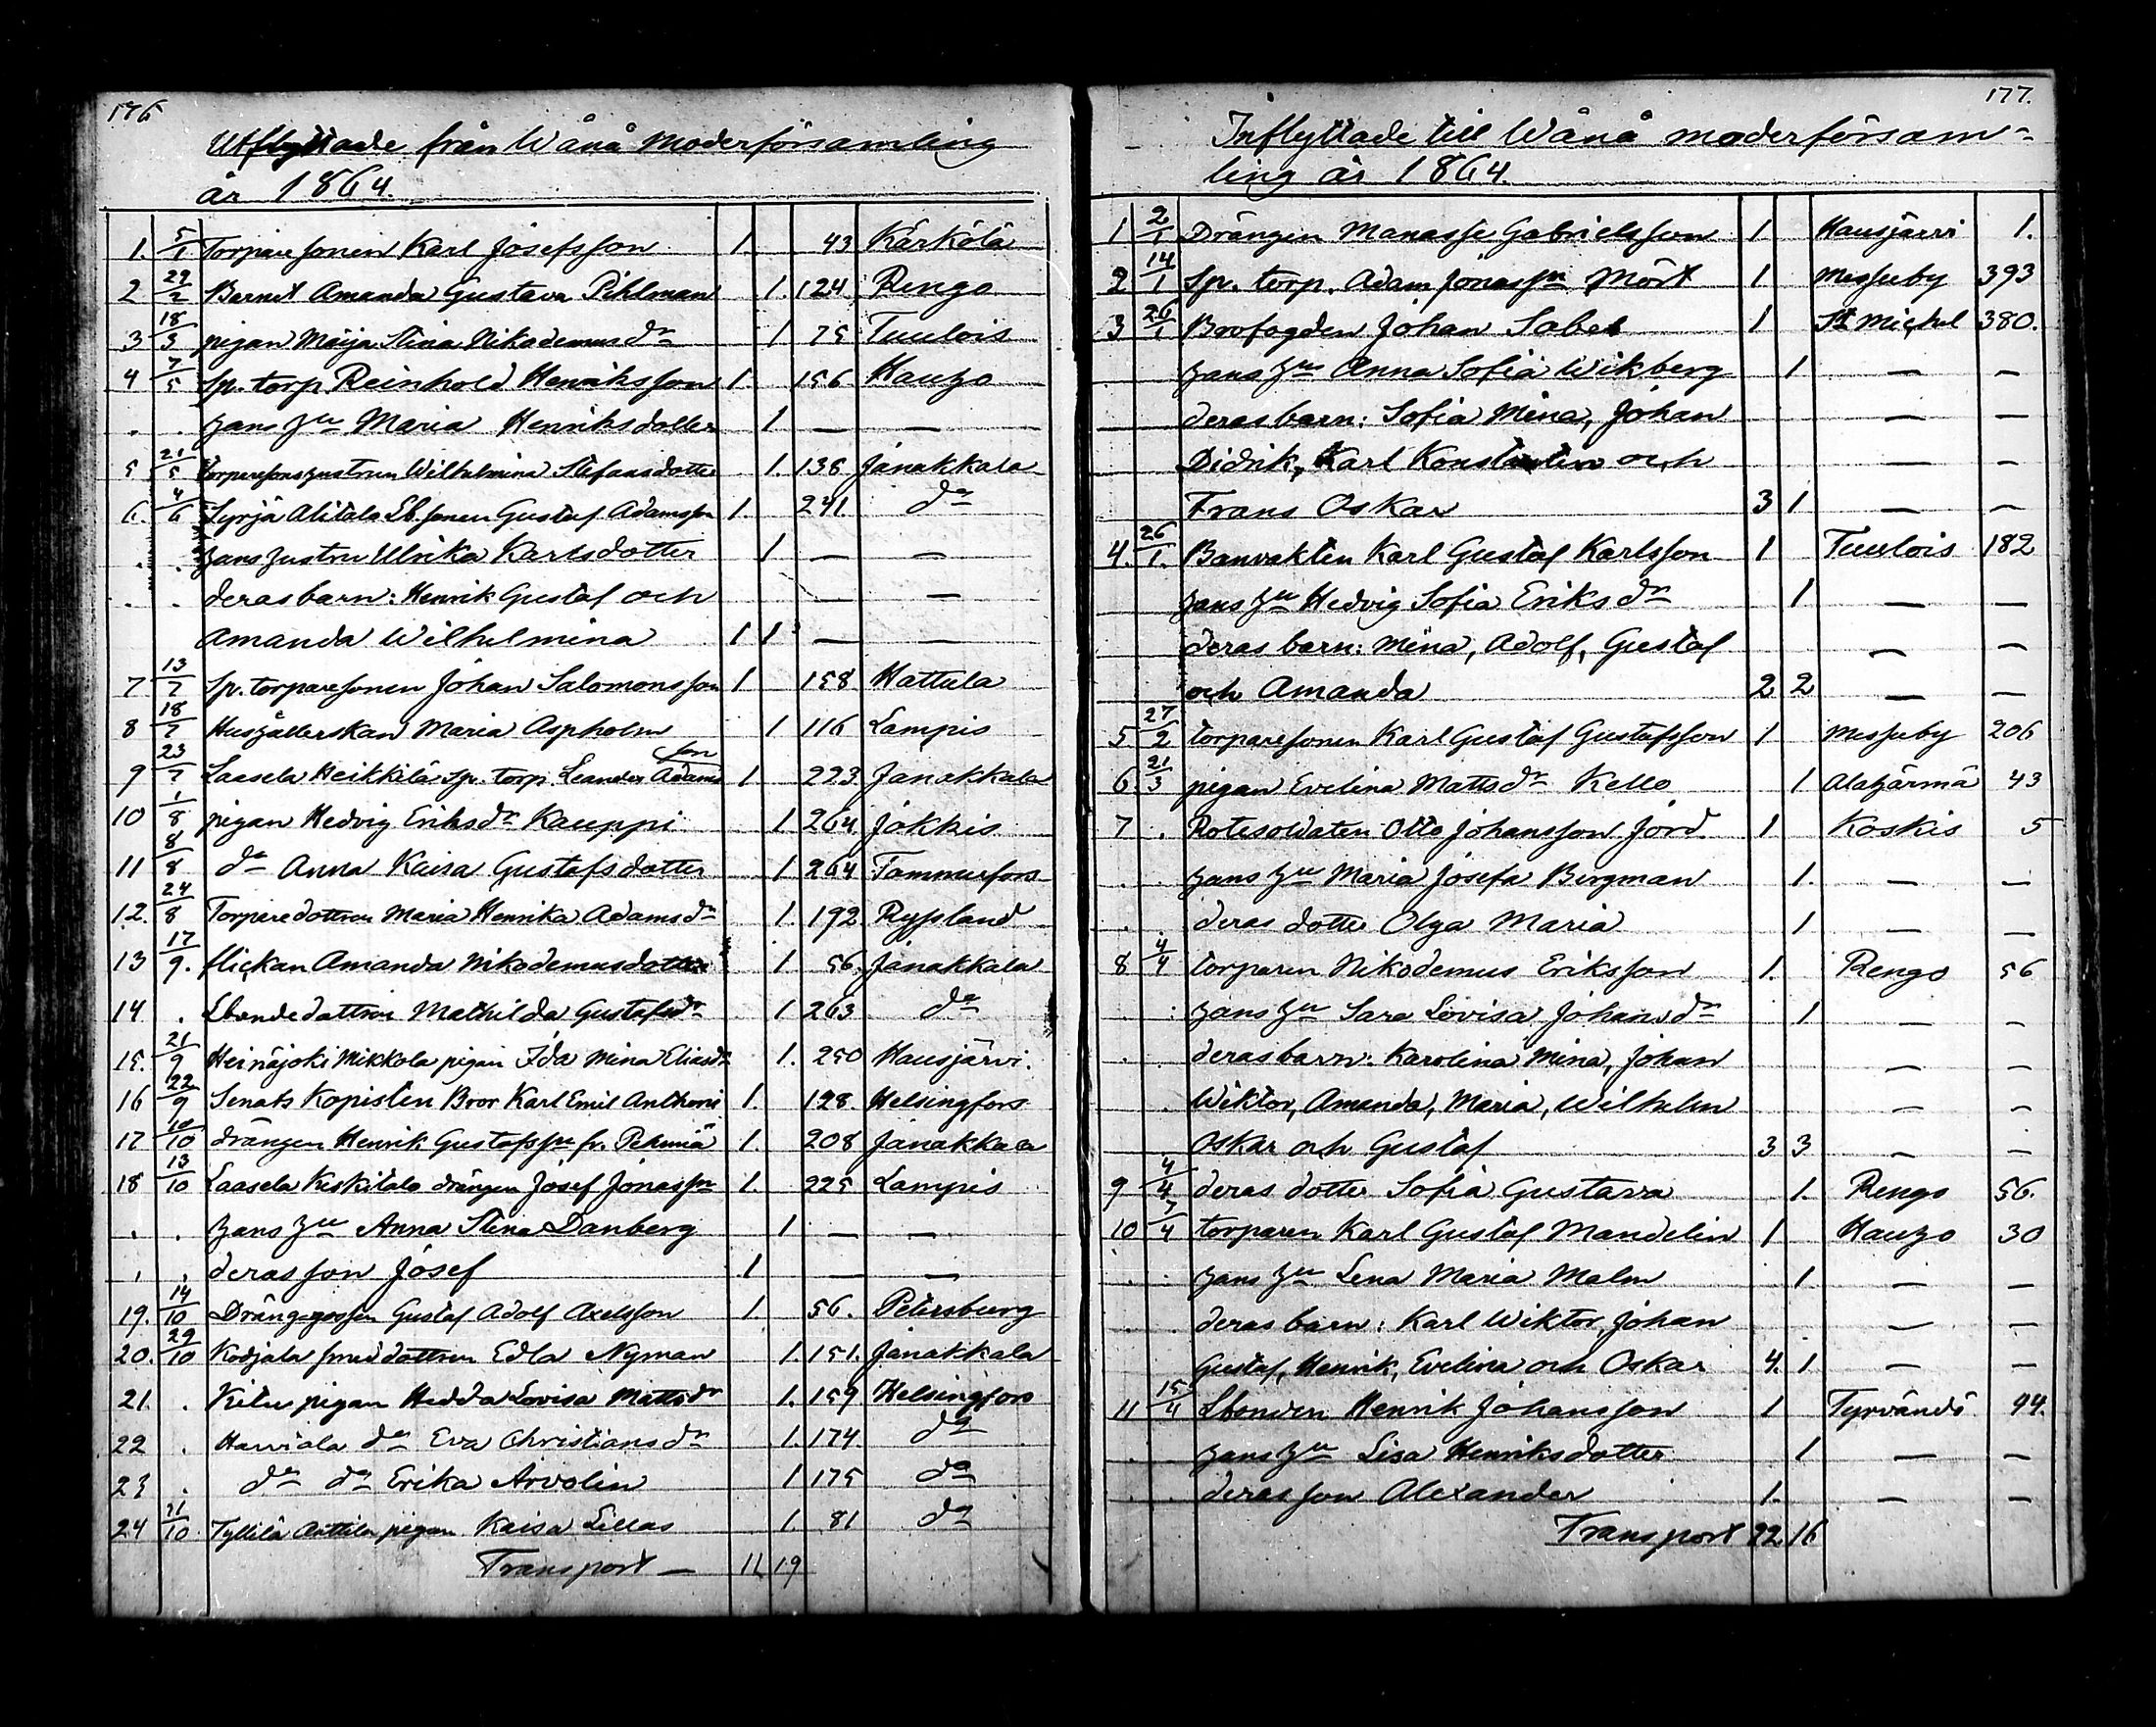 176
Utflyttade från Wånå Moderförsamling
år 1864.
1. 5/1 Torparesonen Karl Josefsson 1. 43 Kärkölä
2 29/2 Barnet Amanda Gustava Pihlman 1. 124. Rengo
3 18/3 pigan Maija Stina Nikodemus dr 1 75 Tuulois
4 7/5 Sp. torp. Reinhold Henriksson 1. 156 Hauho
. . hans hu Maria Henriksdotter 1 — —
5 21/5 torparesonshustrun Wilhelmina Stefansdotter 1. 136 Janakkala
6. 4/6 Syrjä Alitalo Lb. sonen Gustaf Adamsson 1. 241. do
. . hans hustru Ulrika Karlsdotter 1 — —
. . deras barn: Henrik Gustaf och — —
Amanda Wilhelmina 1 1 — —
7 13/7 Sp. torparesonen Johan Salomonsson 1 158 Hattula
8 18/7 Hushållerskan Maria Aspholm 1 116 Lampis
9 23/7 Laasela Heikkilä Sp. torp. Leander Adamsson 1. 223. Janakkala
10 1/8 pigan Hedvig Eriksdr Kauppi 1 264 Jokkis
11 8/8 do Anna Kaisa Gustafsdotter 1 264 Tammerfors
12. 24/8 Torparedottren Maria Henrika Adamsdr 1. 192. Ryssland
13 17/9. flickan Amanda Nikodemusdotter 1. 56. Janakkala
14 . Lbondedottren Mathilda Gustafsdr 1 263 do
15. 21/9 Heinäjoki Mikkola pigan Ida Mina Eliasdr 1. 250 Hausjärvi.
16 22/9 Senats Kopisten Bror Karl Emil Anthoni 1. 128. Helsingfors
17 10/10 drängen Henrik Gustafsson fr. Pehmiä 1. 208 Janakkala
18 13/10 Laasela Keskitalo drängen Josef Jonasson 1. 225 Lampis
. . hans hu Anna Stina Danberg 1 — —
. . deras son Josef 1 — —
19. 14/10 Dränggossen Gustaf Adolf Axelsson 1. 56. Petersburg
20. 29/10 Kodjala smeddottren Edla Nyman 1. 151. Janakkala
21. . Kitu pigan Hedda Lovisa Mattsdr 1. 159 Helsingfors
22 . Harviala do Eva Christiansdr 1. 174. do
23 . do do Erika Arvolin 1 175 do
24 31/10. Tyllilä Anttila pigan Kaisa Lillas 1. 81 do
Transport — 11 19
177.
Inflyttade till Wånå moderförsam-
ling år 1864.
1 2/1 Drängen Manasse Gabrielsson 1 Hausjärvi 1.
2 14/1 Sp. torp. Adam Jonasson Mört 1 Messuby 393
3 26/1 Brofogden Johan Sabel 1 St Michel 380.
hans hu Anna Sofia Wikberg 1 — —
deras barn: Sofia Mina, Johan — —
Didrik, Karl Konstantin och — —
Frans Oskar 3 1 — —
4. 26/1. Banvakten Karl Gustaf Karlsson 1 Tuulois 182
hans hu Hedvig Sofia Eriksdr 1 — —
deras barn: Mina, Adolf, Gustaf — —
och Amanda 2 2 — —
5 27/2 torparesonen Karl Gustaf Gustafsson 1 Messuby 206
6. 21/3 pigan Evelina Mattsdr Kello 1 Alahärmä 43
7 . Rotesoldaten Otto Johansson Jord 1. Koskis 5
. . hans hu Maria Josefa Bergman 1. — —
. . deras dotter Olga Maria 1 — —
8 4/4 torparen Nikodemus Eriksson 1. Rengo 56
. hans hu Sara Lovisa Johansdr 1 — —
. deras barn: Karolina Mina, Johan — —
. Wiktor, Amanda, Maria, Wilhelm — —
Oskar och Gustaf 3 3 — —
9 4/4 deras dotter Sofia Gustava 1. Rengo 56.
10 7/4 torparen Karl Gustaf Mandelin 1 Hauho 30
. . hans hu Lena Maria Malm 1 — —
. . deras barn: Karl Wiktor, Johan — —
Gustaf, Henrik, Evelina och Oskar 4. 1. — —
11 15/4 Lbonden Henrik Johansson 1 Tyrvändö 94.
. . hans hu Lisa Henriksdotter 1 — —
. . deras son Alexander 1. — —
Transport 22. 16